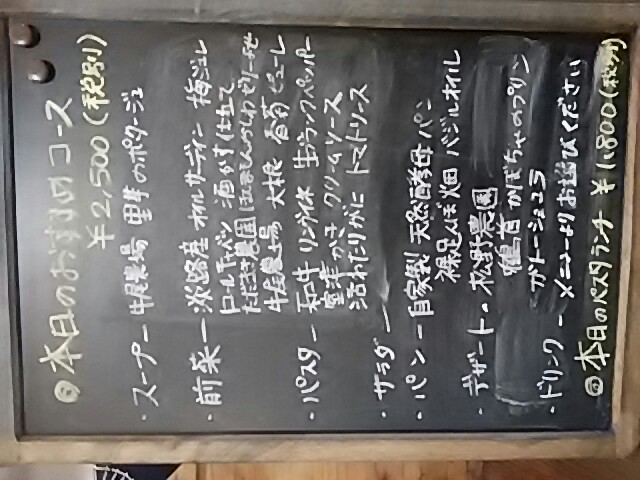 本日のおすすめコース
¥2,500(税別)
・スープー牛尾農場 里芋のポタージュ
・前菜ー淡路産オイルサーディン 梅ジュレ
ロールキャベツ 酒かす仕立て
牛尾農場 大根 春菊 ピューレ
・パスター和牛 リングイネ 生ブラックペッパー
室津かき クリームソース
活わたりがに トマトソース
・サラダー
・パンー自家製 天然酵母パン
裸足んぼ畑 バジルオイル
・デザートー松野農園
鶴首かぼちゃのプリン
ガトーショコラ
・ドリンクーメニューよりお選びください
本日のパスタランチ ¥1,800(税別)